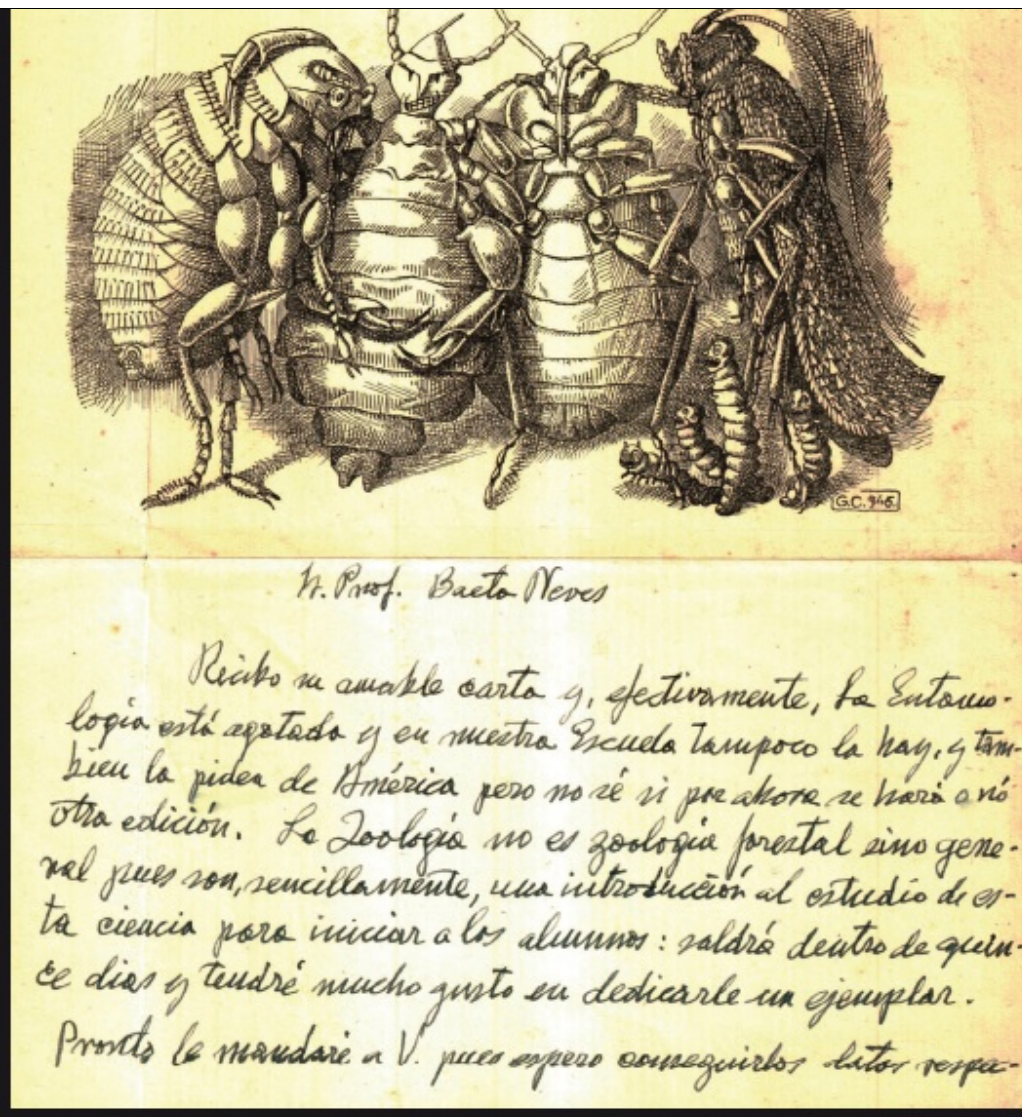 G.C. 946.
Sr. Prof. Baeta Neves
Recibo su amable carta y, efectivamente, La Entomo-
logía está agotada y en nuestra Escuela tampoco la hay, y tam-
bien la piden de América pero no sé si por ahora se hará o nó
otra edición. La Zoología no es zoología forestal sino gene-
ral pues son, sencillamente, una introducción al estudio de es-
ta ciencia para iniciar a los alumnos: saldrá dentro de quin-
ce dias y tendré mucho gusto en dedicarle un ejemplar.
Pronto le mandaré a V. pues espero conseguirlos datos respe-